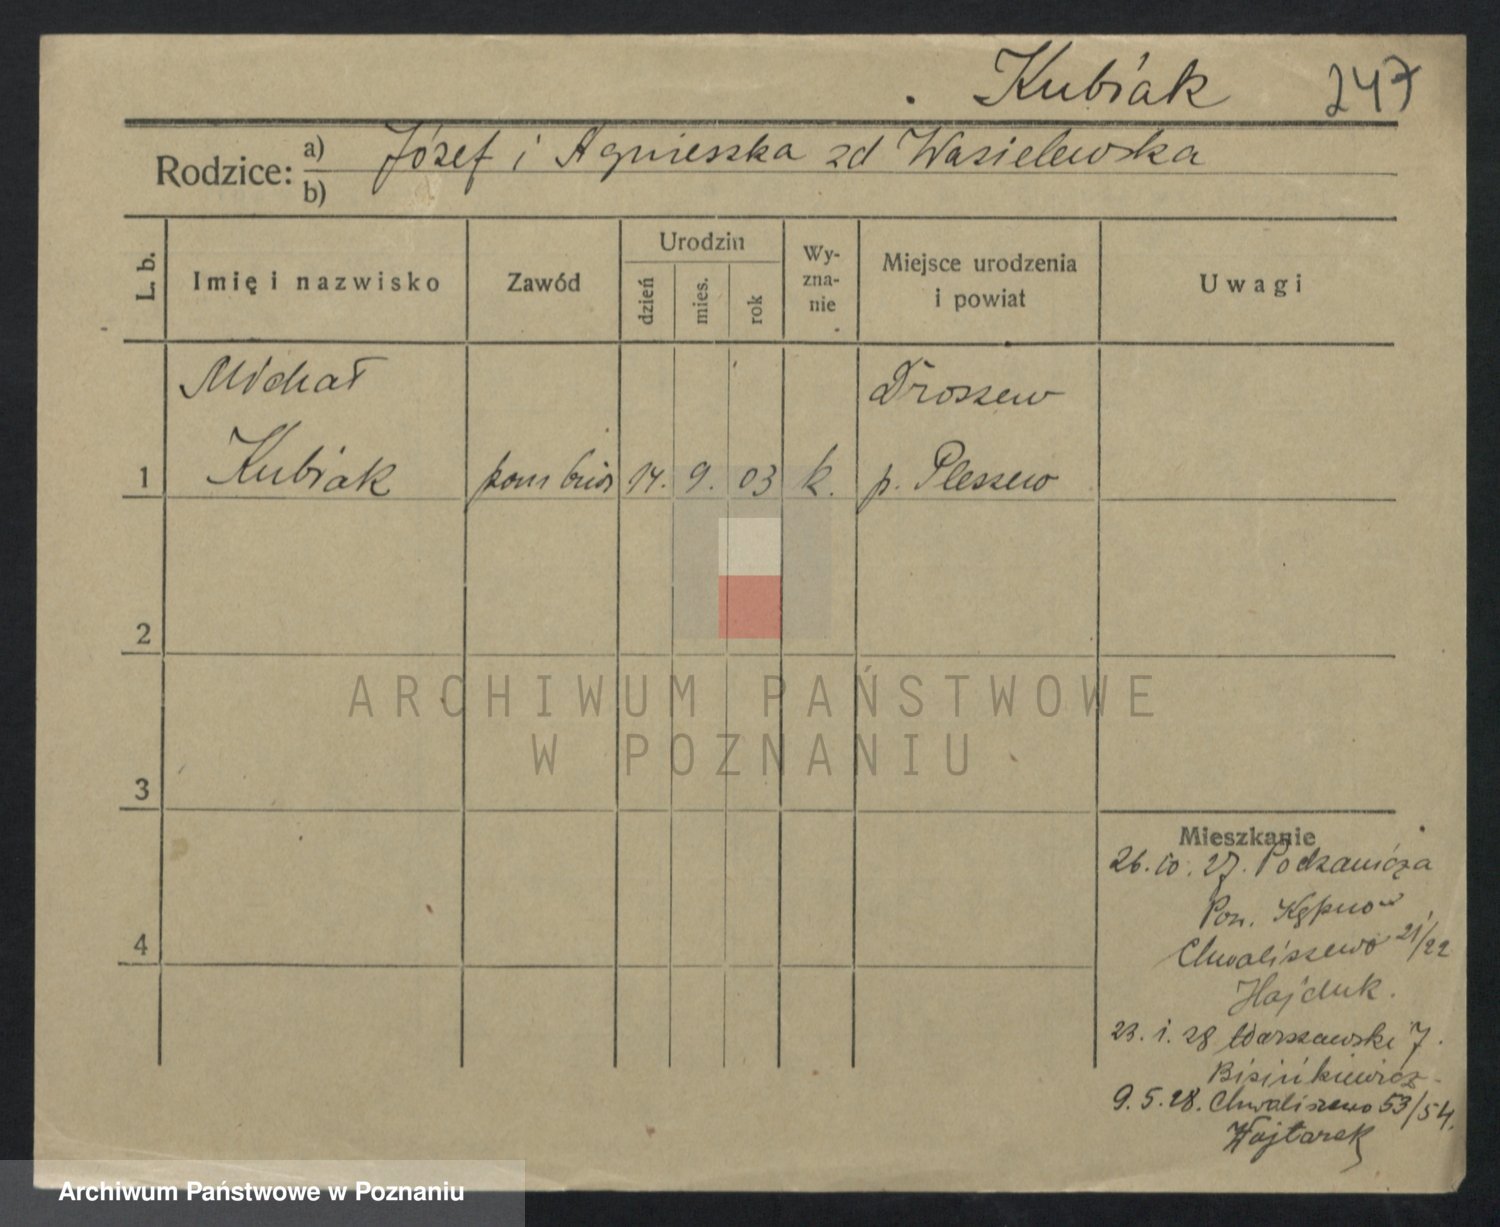 Kubiak 247
Rodzice: a) Józef i Agnieszka zd Wasielewska
b)
L. b.
Imię i nazwisko
Zawód
Urodzin
dzień
mies.
rok
Wy-
zna-
nie
Miejsce urodzenia
i powiat
Uwagi
Michał Droszew
1 Kubiak 14. 9. 03 k. p. Pleszew
2
3
4
ARCHIWUM PAŃSTWOWE
W POZNANIU
Mieszkanie
26.10.27. Podzamcza
Pow. Kępnow
Chwaliszewo 21/22
Hajduk.
23.1.28 Warszawski 7.
9.5.28. Chwaliszewo 53/54.
Wojtarek
Archiwum Państwowe w Poznaniu